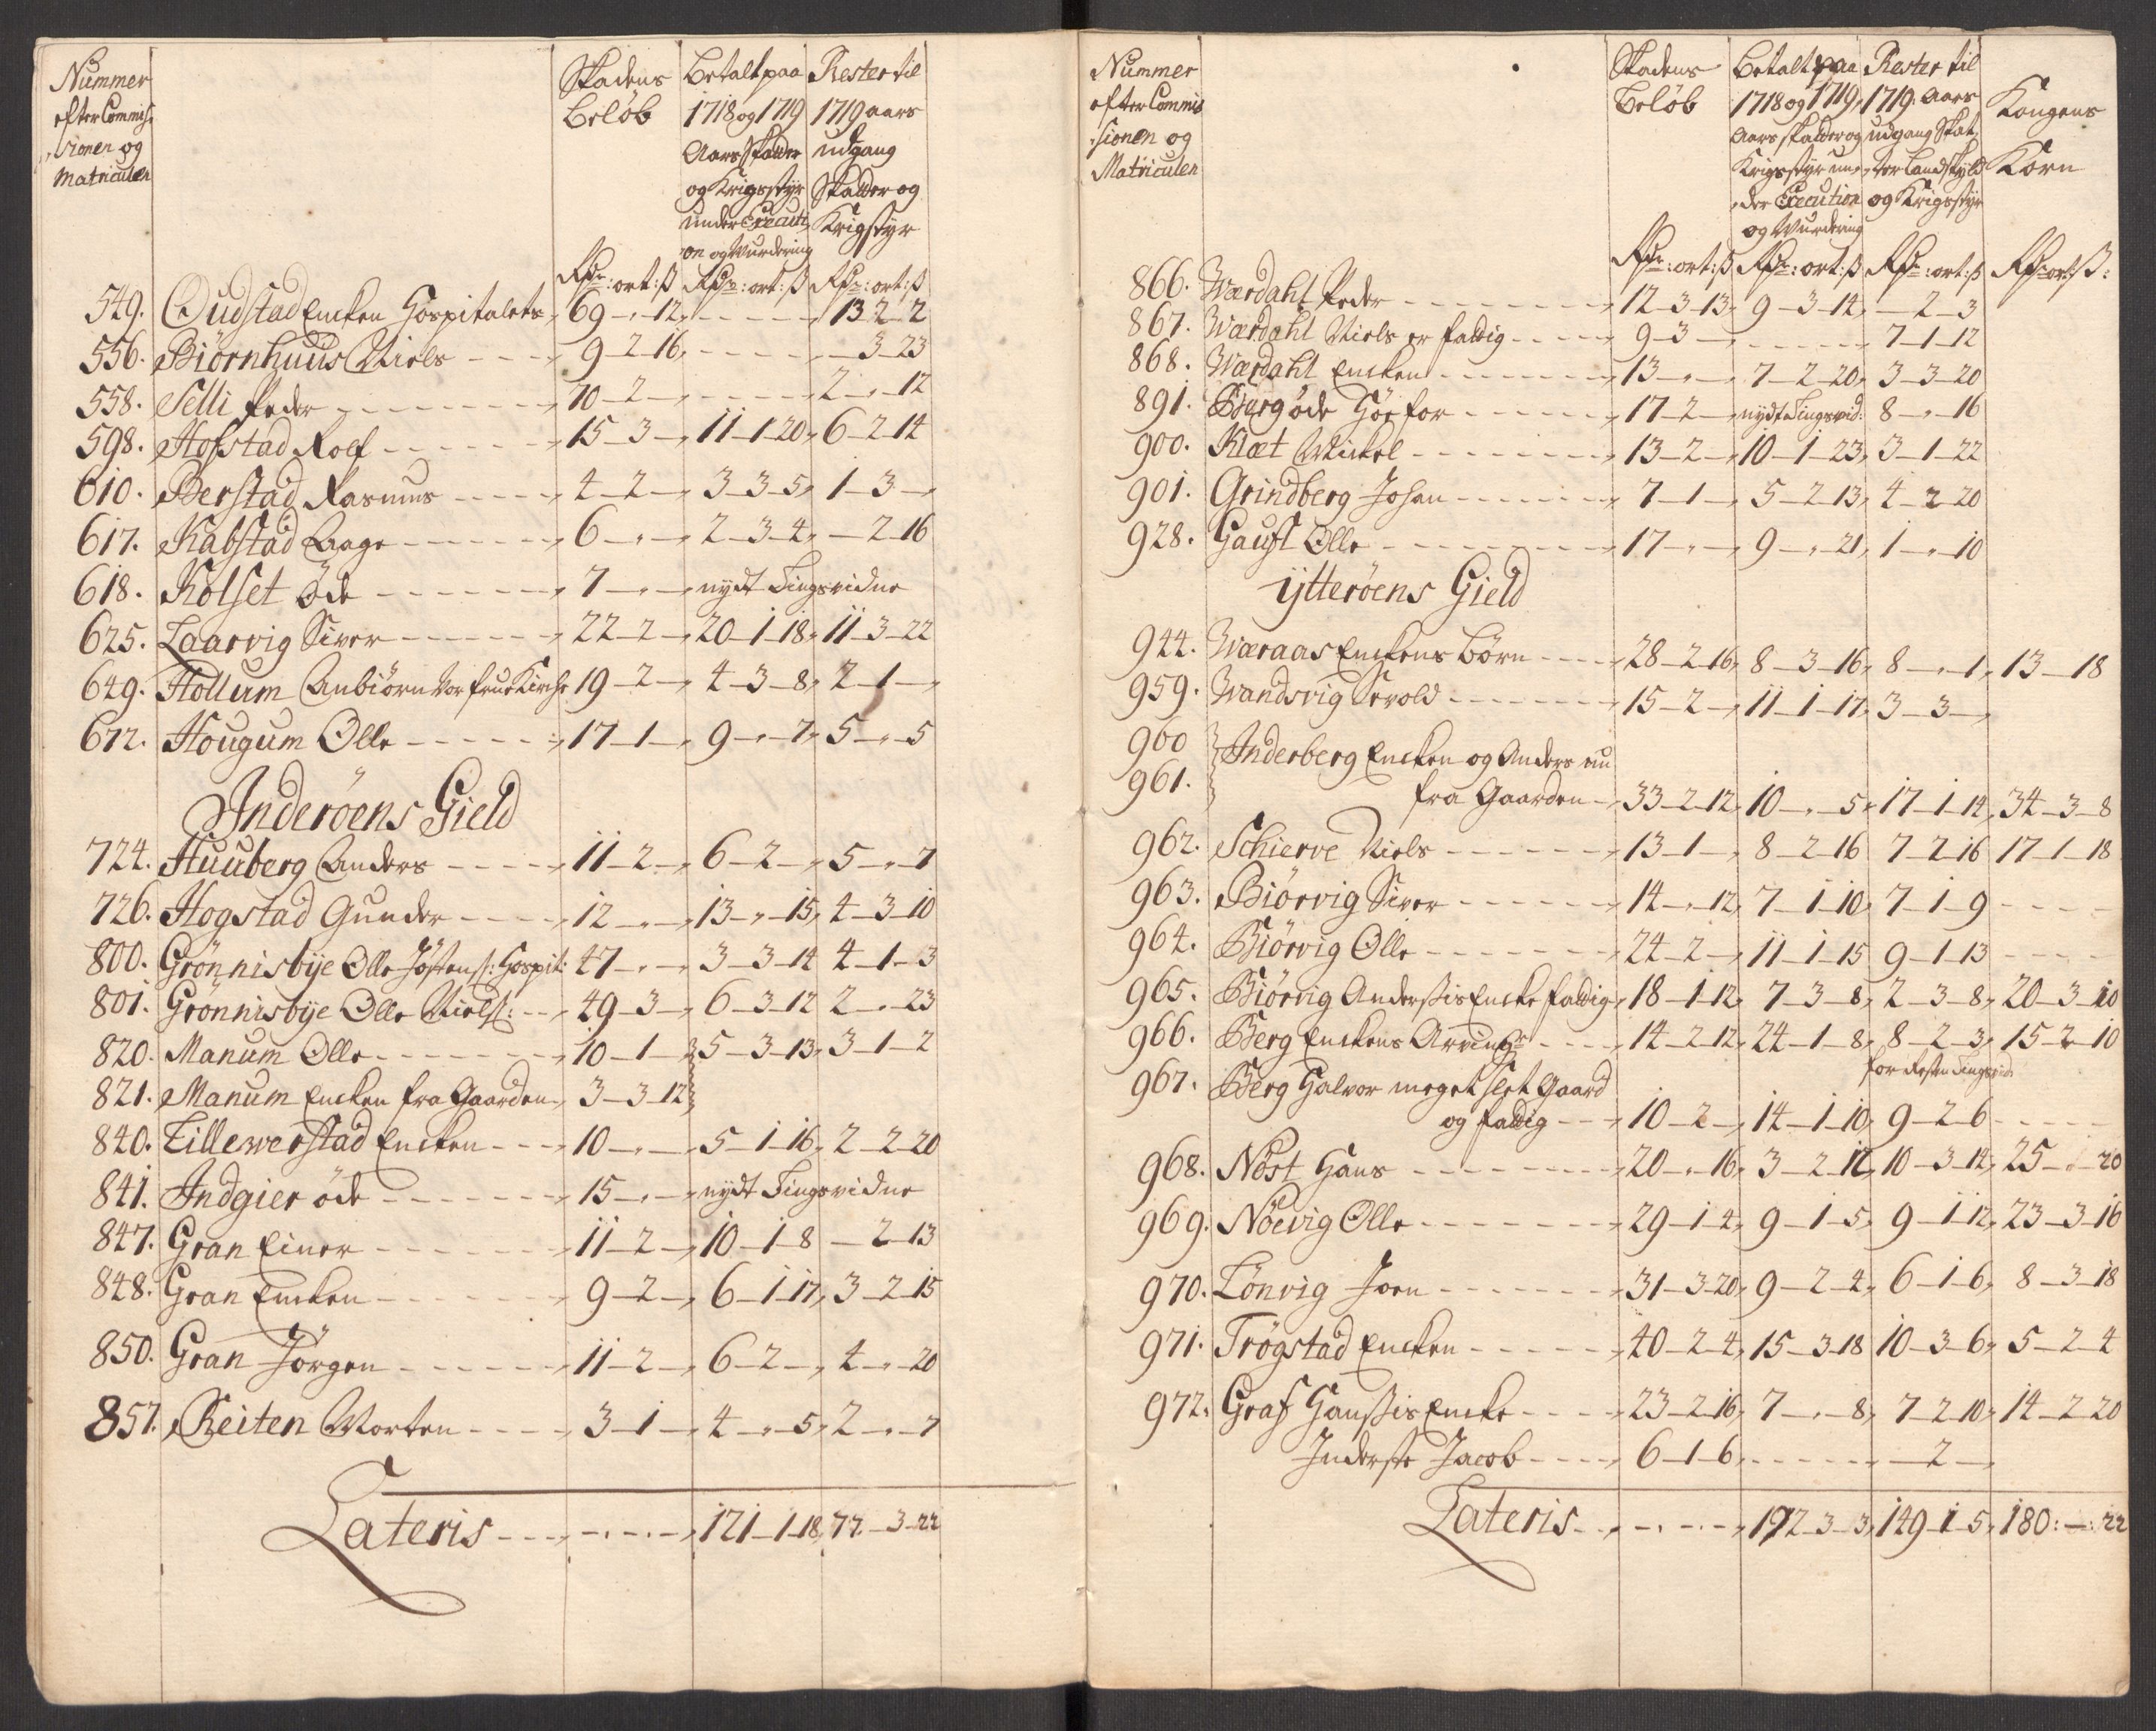 Nummer
efter Commis-
sionen og
Matriculen
Skadens
Beløb
Betalt paa
1718 og 1719
Aars Skatter
og Krigsstyr
under Executi-
on og Wurdering
Rester til
1719 aars
udgang
Skatter og
Krigstyr
Rdr: ort: ß Rdr: ort: ß Rdr: ort: ß
549. Oudstad Encken Hospitalets 69 - „ - 12 - - - - - 13 - 2 - 2
556. Biörnhuus Niels - - - 9 - 2 - 16 - - - - - - 3 - 23
558. Selli Peder - - - 10 - 2 - „ - - - - 2 - „ - 12
598. Hofstad Rolf - - - 15 - 3 - „ 11 - 1 - 20 6 - 2 - 14
610. Berstad Rasmus - - - 4 - 2 - „ 3 - 3 - 5 1 - 3 - „
617. Kabstad Aage - - - 6 - „ - „ 2 - 3 - 4 - 2 - 16
618. Kolset öde - - - 7 - „ - „ nydt Tingsvidne
625. Laarvig Siver - - - 22 - 2 - „ 20 - 1 - 18 11 - 3 - 22
649. Hollum Anbiörn Vor frue Kirche 19 - 2 - „ 4 - 3 - 8 2 - 1 - „
672. Hougum Olle - - - 17 - 1 - „ 9 - „ - 7 5 - „ - 5
Inderöens Gield
724. Huuberg Anders - - - 11 - 2 - „ 6 - 2 - „ 5 - „ - 7
726. Hogstad Gunder - - - 12 - „ - „ 13 - „ - 15 4 - 3 - 10
800. Grönnisbye Olle Jöstens: Hospit: 47 - „ - „ 3 - 3 - 14 4 - 1 - 3
801. Grönnisbye Olle Niels: - - 49 - 3 - „ 6 - 3 - 12 2 - „ - 23
820. Manum Olle - - - 10 - 1 - „ 5 - 3 - 13 3 - 1 - 2
821. Manum Encken fra Gaarden 3 - 3 - 12
840. Tillewerstad Encken - - - 10 - „ - „ 5 - 1 - 16 2 - 2 - 20
841. Indgier öde - - - 15 - „ - „ nydt Tingsvidne
847. Gran Einer - - - 11 - 2 - „ 10 - 1 - 8 - 2 - 13
848. Gran Encken - - - 9 - 2 - „ 6 - 1 - 17 3 - 2 - 15
850. Gran Jörgen - - - 11 - 2 - „ 6 - 2 - „ 4 - „ - 20
857. Reiten Morten - - - 3 - 1 - „ 4 - „ - 5 2 - „ - 7
Lateris - - - - - - 121 - 1 - 18 77 - 3 - 22
Nummer
efter Commis
sionen og
Matriculen
Skadens
Beløb
Betalt paa
1718 og 1719
Aars skatter og
Krigsstyr un-
der Execution
og Wurdering
Rester til
1719. Aars
udgang Skat-
ter Landskyld
og Krigsstyr
Kongens
Korn
Rdr: ort: ß Rdr: ort: ß Rdr: ort: ß Rdr ort ß:
866. Wærdahl Peder - - - 12 - 3 - 13 9 - 3 - 14 - 2 - 3
867. Wærdahl Niels er fattig - - - 9 - 3 - - - - 7 - 1 - 12
868. Wærdahl Encken - - - 13 - „ - „ 7 - 2 - 20 3 - 3 - 20
891. Berg öde - - - 17 - 2 - „ nydt Tingsvid: 8 - „ - 16
900. Klæt Mickel - - - 13 - 2 - „ 10 - 1 - 23 3 - 1 - 22
901. Grindberg Johan - - - 7 - 1 - „ 5 - 2 - 13 4 - 2 - 20
928. Gaust Olle - - - 17 - „ - „ 9 - „ - 21 1 - „ - 10
Ytteröens Gield
944. Wæraas Enckens Börn - - - 28 - 2 - 16 8 - 3 - 16 8 - „ - 1 13 - 18
959. Wandsvig Sevold - - - 15 - 2 - „ 11 - 1 - 17 3 - 3 - „
960
961. Inderberg Encken og Anders nu
fra Gaarden - 33 - 2 - 12 10 - „ - 5 17 - 1 - 14 34 - 3 - 8
962. Schierve Niels - - - 13 - 1 - „ 8 - 2 - 16 7 - 2 - 16 17 - 1 - 18
963. Biörvig Siver - - - 14 - „ - 12 7 - 1 - 10 7 - 1 - 9 - - -
964. Biörvig Olle - - - 24 - 2 - „ 11 - 1 - 15 9 - 1 - 13 - - -
965. Biörvig Anderssis Encke fattig 18 - 1 - 12 7 - 3 - 8 2 - 3 - 8 20 - 3 - 10
966. Berg Enckens Arving - - - 14 - 2 - 12 24 - 1 - 8 8 - 2 - 3 15 - 2 - 10
for Resten Tingsvid:
967. Berg Halvor meget slet Gaard
og fattig - - - 10 - 2 - „ 14 - 1 - 10 9 - 2 - 6 - - -
968. Nöst Hans - - - 20 - „ - 16 3 - 2 - 12 10 - 3 - 14 25 - - 20
969. Nöevig Olle - - - 29 - 1 - 4 9 - 1 - 5 9 - 1 - 12 23 - 3 - 16
970. Lönvig Joen - - - 31 - 3 - 20 9 - 2 - 4 6 - 1 - 6 8 - 3 - 18
971. Trögstad Encken - - - 40 - 2 - 4 15 - 3 - 18 10 - 3 - 6 5 - 2 - 4
972. Graf Hanssis Encke - - - 23 - 2 - 16 7 - „ - 8 7 - 2 - 10 14 - 2 - 20
Inderste Jacob - - - 6 - 1 - 6 - - - - 2 - „
Lateris - - - - - 192 - 3 - 3 149 - 1 - 5 180: - : 22